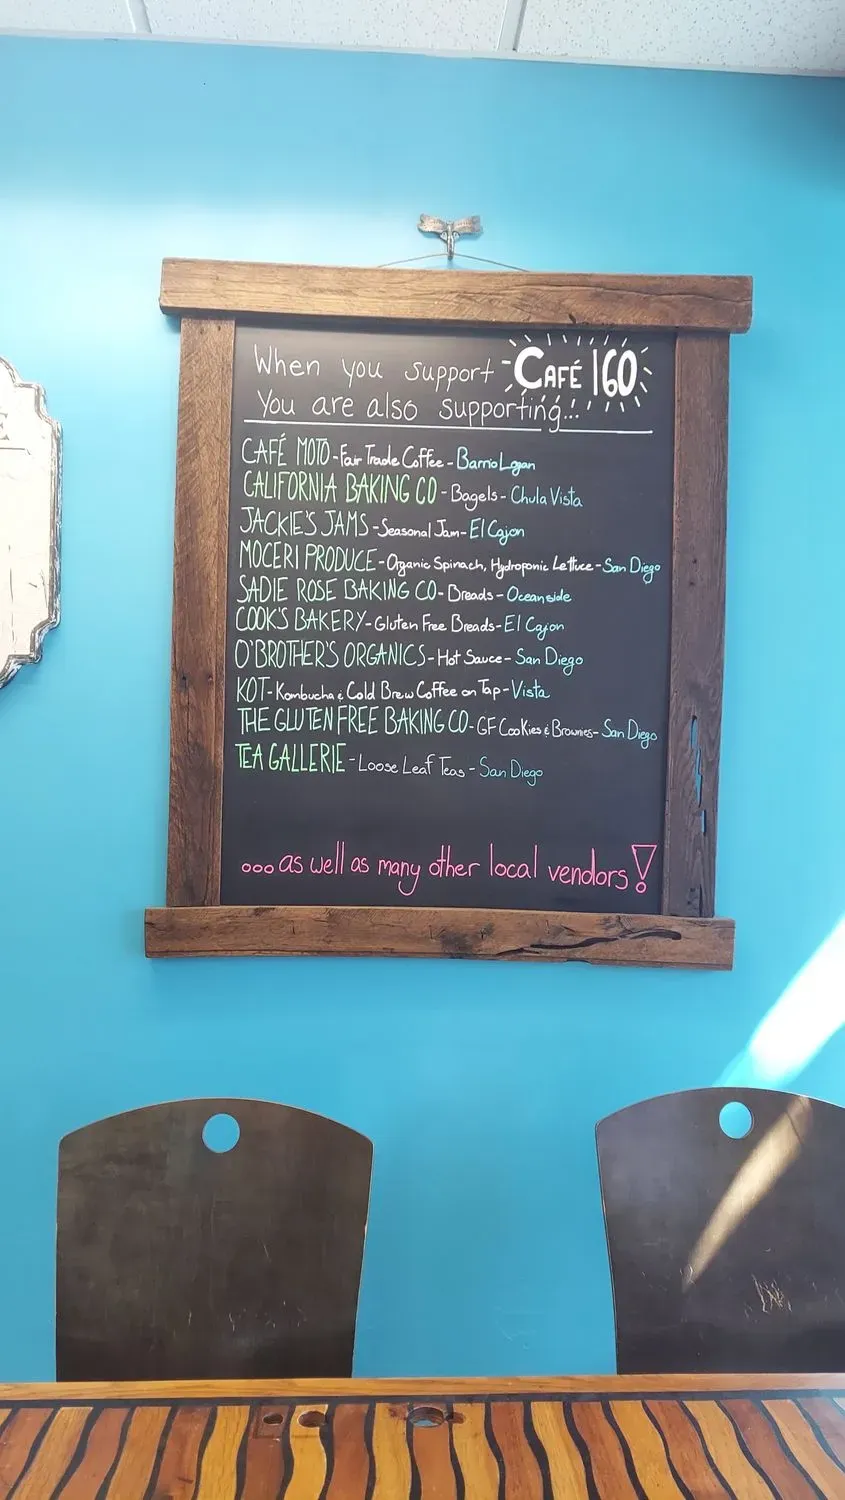 When you support CAFÉ 160
You are also supporting...
CAFÉ MOTO - Fair Trade Coffee - Barrio Logan
CALIFORNIA BAKING CO - Bagels - Chula Vista
JACKIE'S JAMS - Seasonal Jam - El Cajon
MOCERI PRODUCE - Organic Spinach, Hydroponic Lettuce - San Diego
SADIE ROSE BAKING CO - Breads - Oceanside
COOK'S BAKERY - Gluten Free Breads - El Cajon
O'BROTHER'S ORGANICS - Hot Sauce - San Diego
KOT - Kombucha & Cold Brew Coffee on Tap - Vista
THE GLUTEN FREE BAKING CO - GF Cookies & Brownies - San Diego
TEA GALLERIE - Loose Leaf Teas - San Diego
... as well as many other local vendors!